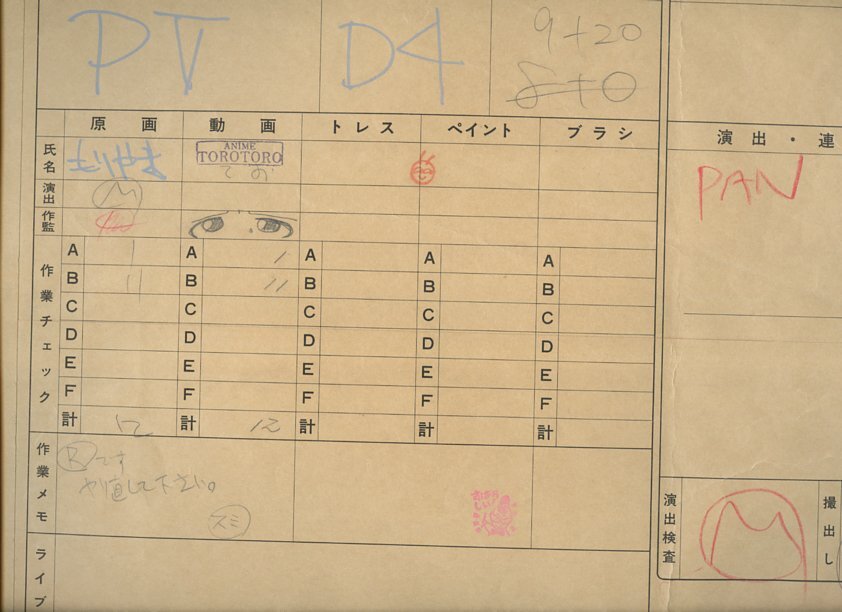 PT D4 9+20
8+0
原画 動画 トレス ペイント ブラシ
氏名 もりやま ANIME TOROTORO
演出
作監
作業チェック
A 1 A 1 A A A
B 11 B 11 B B B
C C C C C
D D D D D
E E E E E
F F F F F
計 12 計 12 計 計 計
作業メモ
Rです
やり直して下さい。
スミ
ライブ
演出・連
PAN
演出検査
撮出し